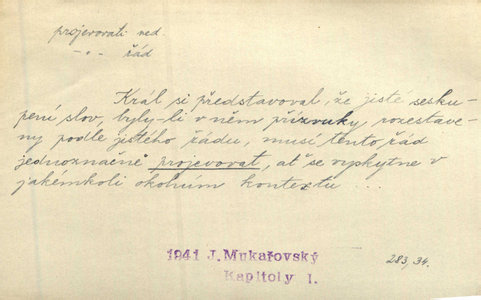 projevovati ned.
-"- řád
Král si představoval, že jisté sesku-
pení slov, byly-li v něm přízvuky, rozestave-
ny podle jistého řádu, musí tento řád
jednoznačně projevovat, ať se vyskytne v
jakémkoli okolním kontextu ...
1941 J. Mukařovský
Kapitoly I.
283, 34.